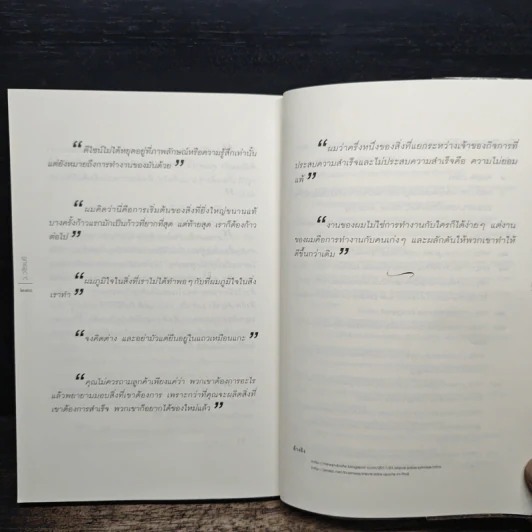 “ดีไซน์ไม่ได้หยุดอยู่ที่ภาพลักษณ์หรือความรู้สึกเท่านั้น
แต่ยังหมายถึงการทำงานของมันด้วย”
“ผมคิดว่านี่คือการเริ่มต้นของสิ่งที่ยิ่งใหญ่ขนานแท้
บางครั้งก้าวแรกมักเป็นก้าวที่ยากที่สุด แต่ท้ายสุด เราก็ต้องก้าว
ต่อไป”
“ผมภูมิใจในสิ่งที่เราไม่ได้ทำพอๆ กับที่ผมภูมิใจในสิ่ง
เราทำ”
“จงคิดต่าง และอย่ามัวแต่ยืนอยู่ในแถวเหมือนแกะ”
“คุณไม่ควรถามลูกค้าเพียงแค่ว่า พวกเขาต้องการอะไร
แล้วพยายามมอบสิ่งที่เขาต้องการ เพราะกว่าที่คุณจะผลิตสิ่งที่
เขาต้องการสำเร็จ พวกเขาก็อยากได้ของใหม่แล้ว”
“ผมว่าครึ่งหนึ่งของสิ่งที่แยกระหว่างเจ้าของกิจการที่
ประสบความสำเร็จและไม่ประสบความสำเร็จคือ ความไม่ยอม
แพ้”
“งานของผมไม่ใช่การทำงานกับใครก็ได้ง่ายๆ แต่งาน
ของผมคือการทำงานกับคนเก่งๆ และผลักดันให้พวกเขาทำให้
ดีขึ้นกว่าเดิม”
อ้างอิง